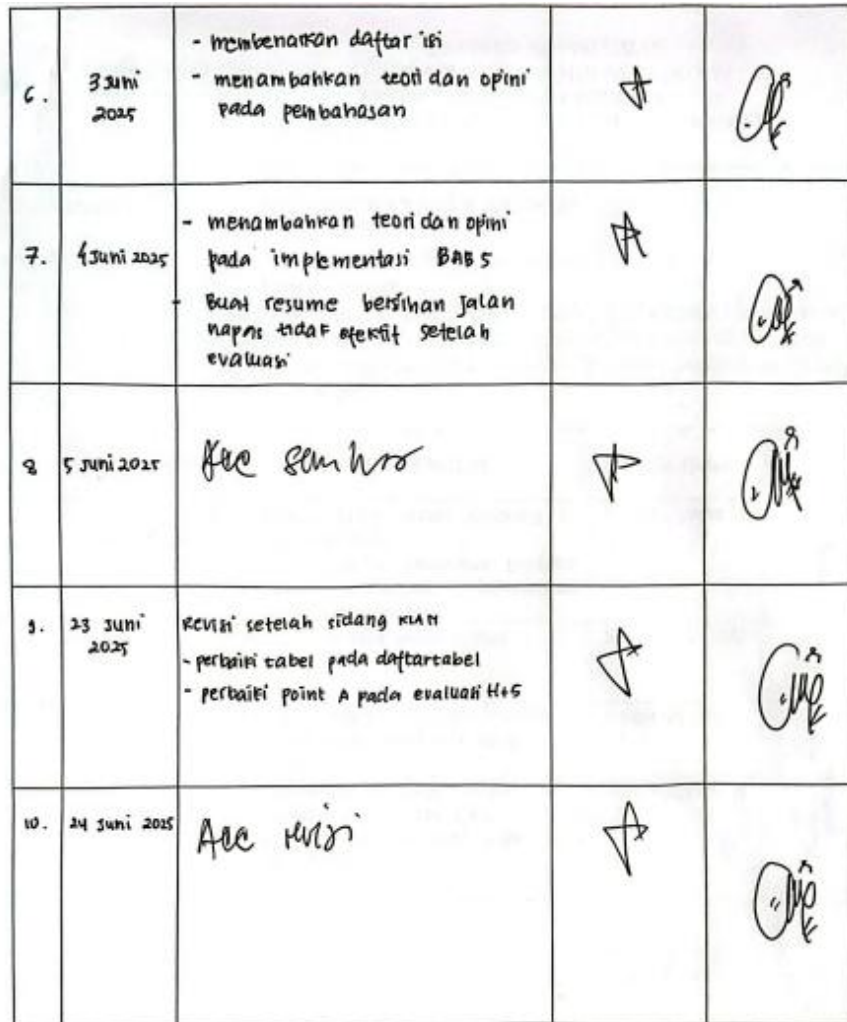 6.
3 Juni
2025
- membenarkan daftar isi
- menambahkan teori dan opini
pada pembahasan
7.
4 Juni 2025
- menambahkan teori dan opini
pada implementasi BAB 5
- Buat resume bersihan jalan
napas tidak efektif setelah
evaluasi
8
5 Juni 2025
Acc
9.
23 Juni
2025
Revisi setelah sidang KIAN
- perbaiki tabel pada daftar tabel
- perbaiki point A pada evaluasi H+5
10.
24 Juni 2025
Acc revisi